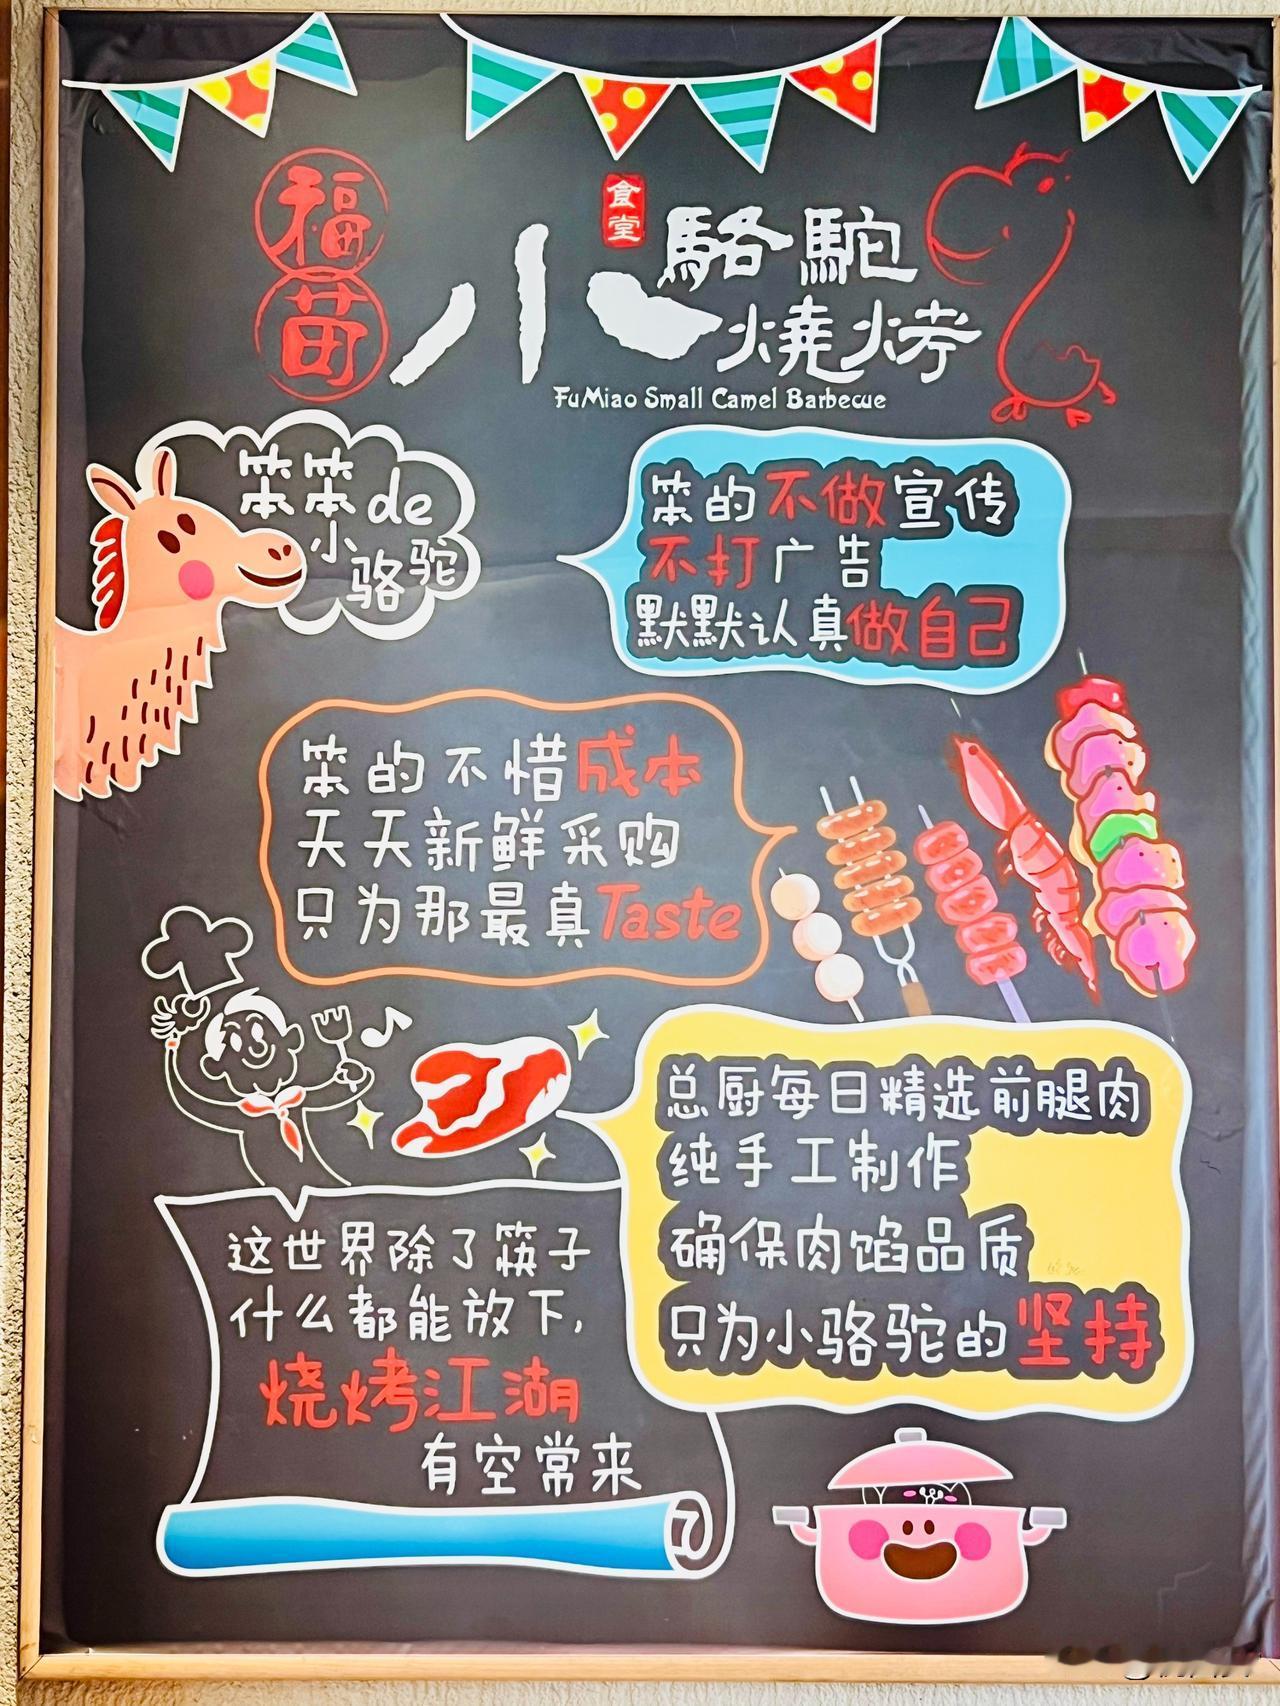 福苗
食堂
小駱駝
燒烤
FuMiao Small Camel Barbecue
笨笨de
小骆驼
笨的不做宣传
不打广告
默默认真做自己
笨的不惜成本
天天新鲜采购
只为那最真Taste
总厨每日精选前腿肉
纯手工制作
确保肉馅品质
只为小骆驼的坚持
这世界除了筷子
什么都能放下,
烧烤江湖
有空常来